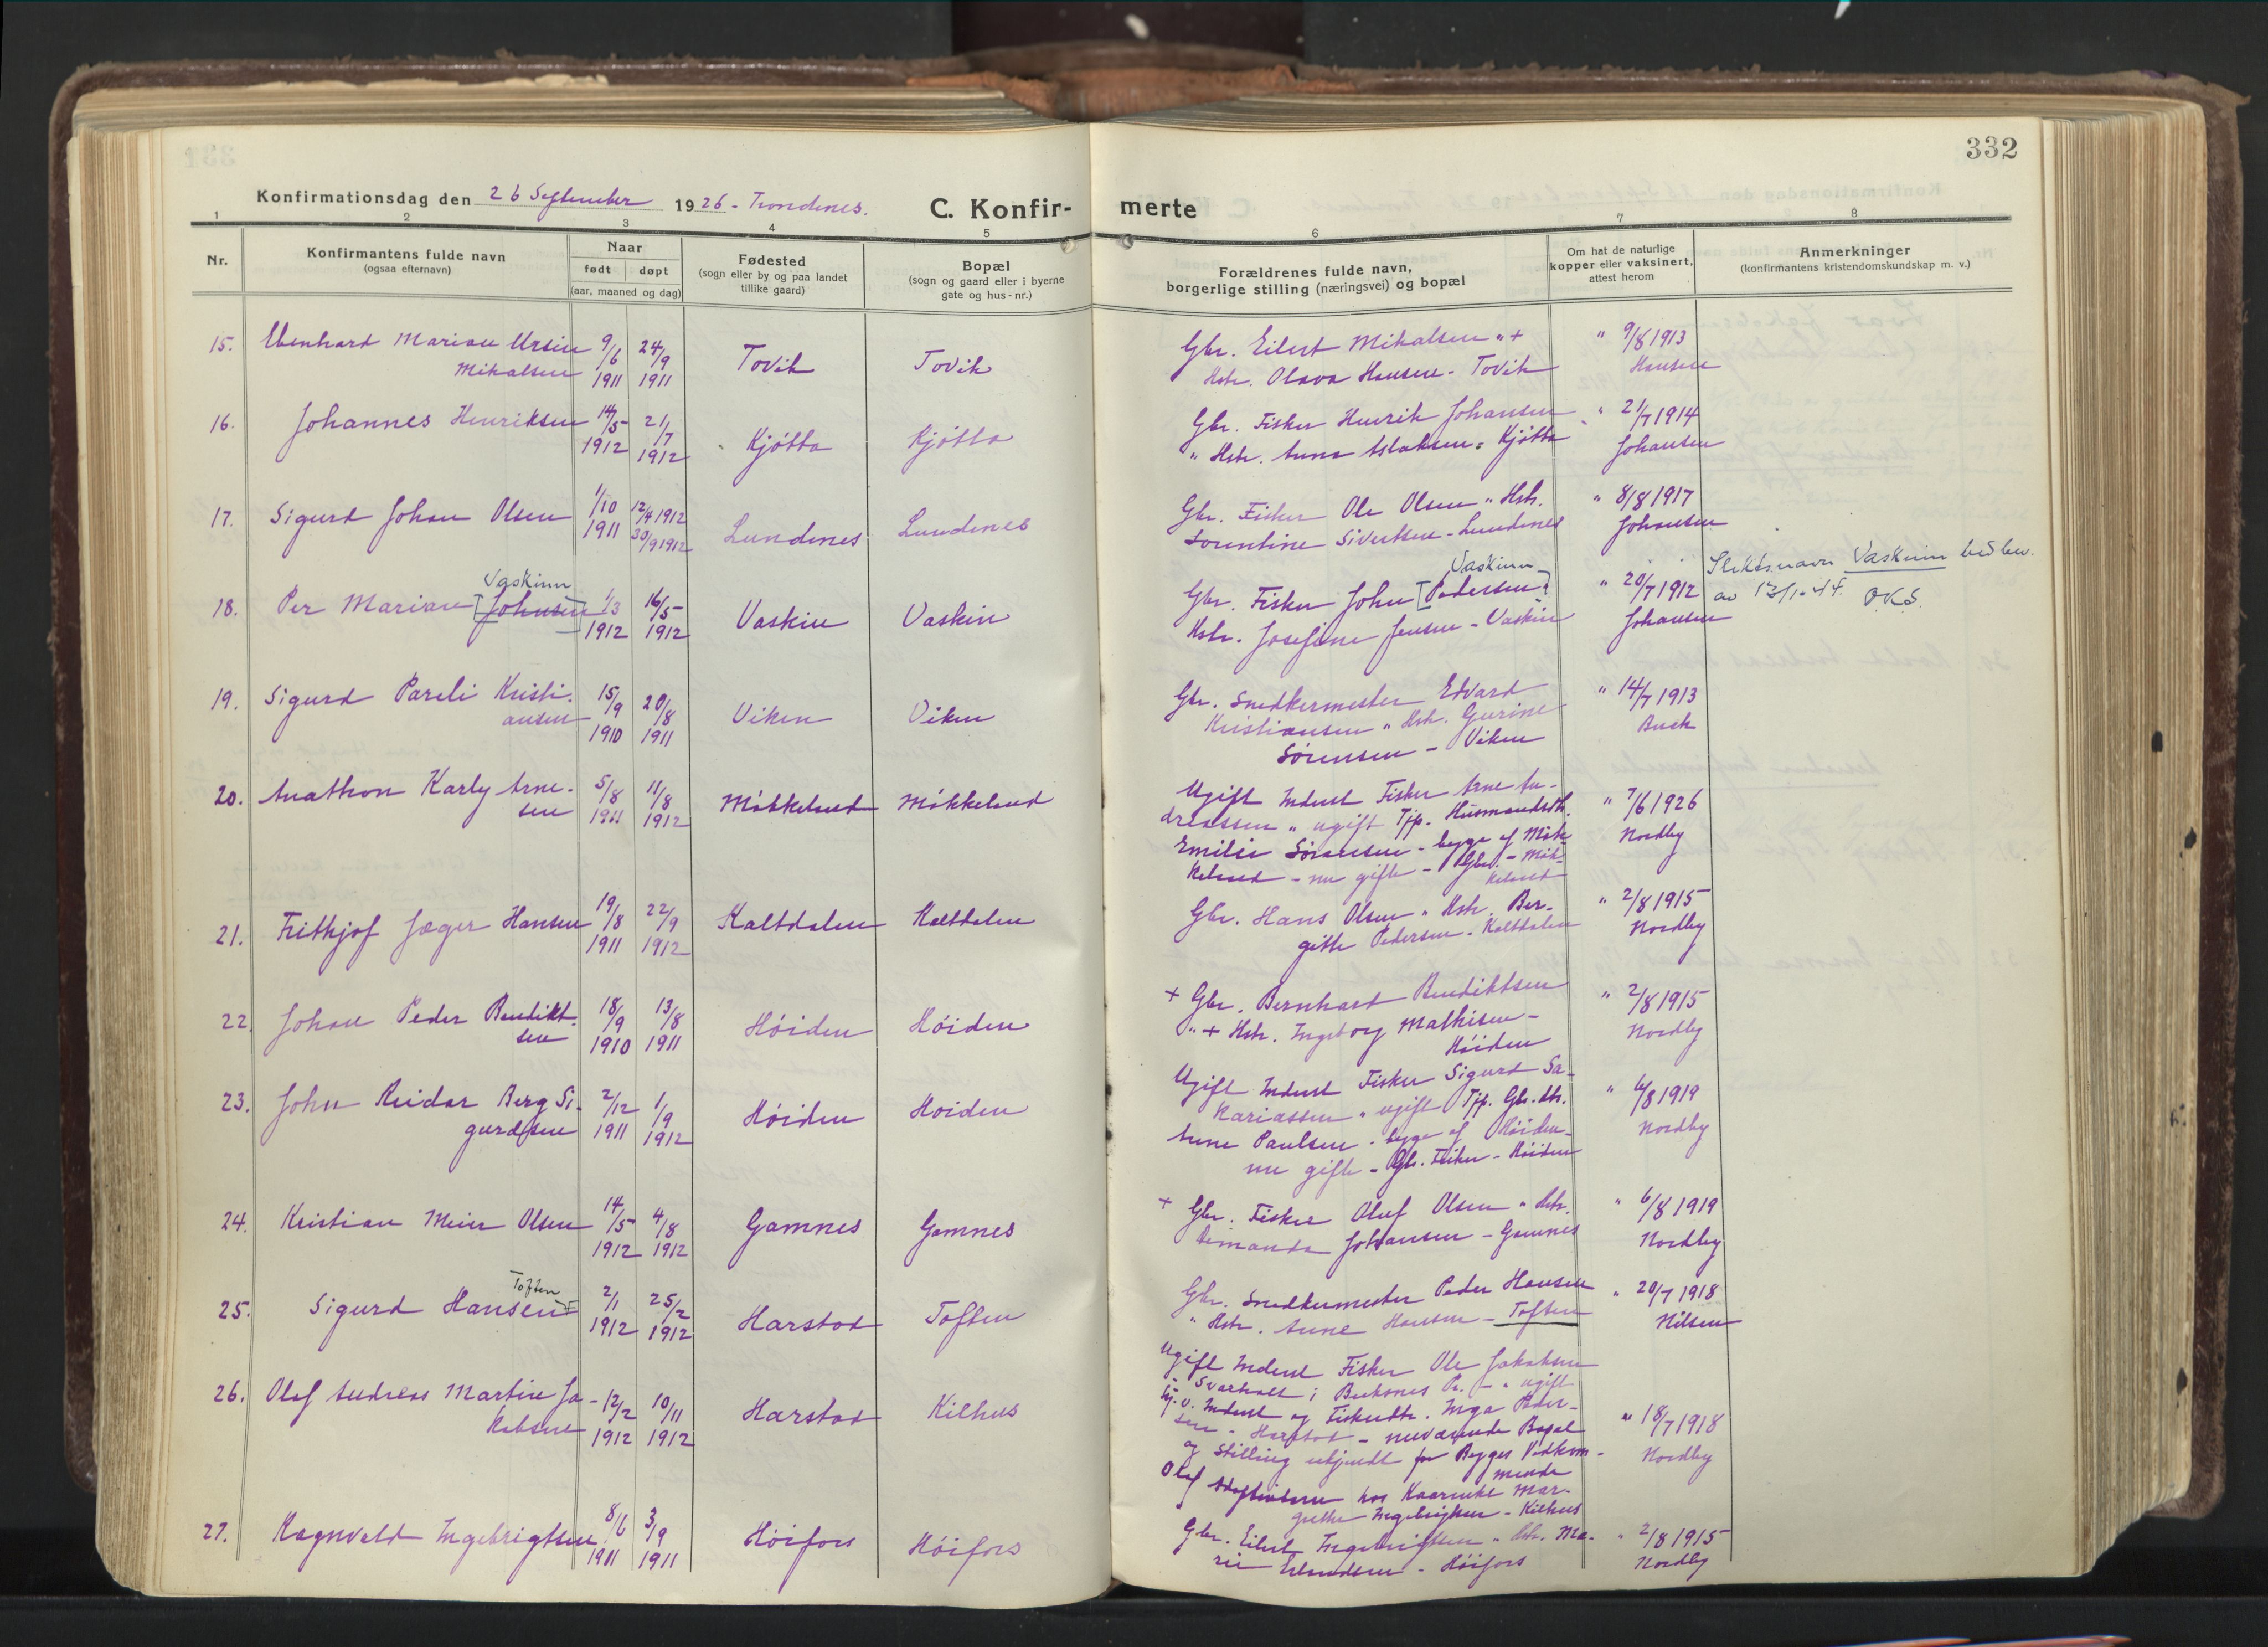 332
Konfirmationsdag den 26 September 1926 - Trondenes.
C. Konfir- merte
1 2 3 4 5 6 7 8
Nr.
Konfirmantens fulde navn
(ogsaa efternavn)
Naar
født døpt
(aar, maaned og dag)
Fødested
(sogn eller by og paa landet
tillike gaard)
Bopæl
(sogn og gaard eller i byerne
gate og hus-nr.)
Forældrenes fulde navn,
borgerlige stilling (næringsvei) og bopæl
Om hat de naturlige
kopper eller vaksinert,
attest herom
Anmerkninger
(konfirmantens kristendomskundskap m. v.)
15. Edenhard Marian Ursin 9/6 24/9 Tovik Tovik Gbr. Eilert Mikalsen " + " 9/8 1913
Mikalsen 1911 1911 Hstr. Olava Hansen - Tovik Hansen
16. Johannes Henriksen 14/5 21/7 Kjøtta Kjøtta Gbr. Fisker Henrik Johansen " 21/7 1914
1912 1912 " Hstr. Anna Aslaksen - Kjøtta Johansen
17. Sigurd Johan Olsen 1/10 12/4 1912 Lundenes Lundenes Gbr. Fisker Ole Olsen " Hstr. " 8/8 1917
1911 30/9 1912 Sorentine Sivertsen - Lundenes Johansen
Vaskinn Vaskinn Slektsnavn Vaskinn bev.
18. Per Marian [Johnsen] 1/3 16/5 Vaskin Vaskin Gbr. Fisker John [Pedersen] " 20/7 1912 av 13/1-44. O.K.S.
1912 1912 Hstr. Josefine Jensen - Vaskin Johansen
19. Sigurd Pareli Kristi- 15/9 20/8 Viken Viken Gbr. Snedkermester Edvard " 14/7 1913
ansen 1910 1911 Kristiansen " Hstr. Gurine Buck
Sörensen - Viken
20. Anathon Karly Arne- 5/8 11/8 Møkkeland Møkkeland Ugift Inderst Fisker Arne An- " 7/6 1926
sen 1911 1912 dreassen " ugift Tjp. Husmandsdtr. Nordby
Emilie Sörensen - begge af Møk-
keland - nu gifte - Gbr. - Møk-
keland
21. Frithjof Jæger Hansen 19/8 22/9 Kaltdalen Kaltdalen Gbr. Hans Olsen " Hstr. Ber- " 2/8 1915
1911 1912 gitte Pedersen - Kaltdalen Nordby
22. Johan Peder Bendikt- 18/9 13/8 Høiden Høiden + Gbr. Bernhart Bendiktsen " 2/8 1915
sen 1910 1911 " + Hstr. Ingeborg Mathisen - Nordby
Høiden
23. John Reidar Berg Si- 2/12 1/9 Høiden Høiden Ugift Inderst Fisker Sigurd Sa- " 6/8 1919
gurdsen 1911 1912 kariassen " ugift Tjp. Gbr.dtr. Nordby
Anne Paulsen - begge af Høiden -
nu gifte - Gbr. Fisker - Høiden
24. Kristian Meier Olsen 14/5 4/8 Gamnes Gamnes + Gbr. Fisker Oluf Olsen " Hstr. " 6/8 1919
1912 1912 Amanda Johansen - Gamnes Nordby
Toften
25. Sigurd Hansen 2/1 25/2 Harstad Toften Gbr. Snedkermester Peder Hansen " 20/7 1918
1912 1912 " Hstr. Anne Hansen - Toften Nilsen
26. Olaf Andreas Martin Ja- 12/2 10/11 Harstad Kilhus Ugift Inderst Fisker Ole Jakobsen
kobsen 1912 1912 - Svartvatt i Buksnes Pr. - " ugift
Inderst og Fiskerdtr. Inga Peder- " 18/7 1918
sen - Harstad - nuværende Bopæl Nordby
og Stilling ukjendt for Begges Vedkom-
mende
Olaf Adoptivbarn hos Kaarenke Mar-
grethe Ingebrigtsen - Kilhus
27. Ragnvald Ingebrigtsen 8/6 3/9 Høifors Høifors Gbr. Eilert Ingebrigtsen " Hstr. Ma- " 2/8 1915
1911 1911 rie Erlandsen - Høifors Nordby